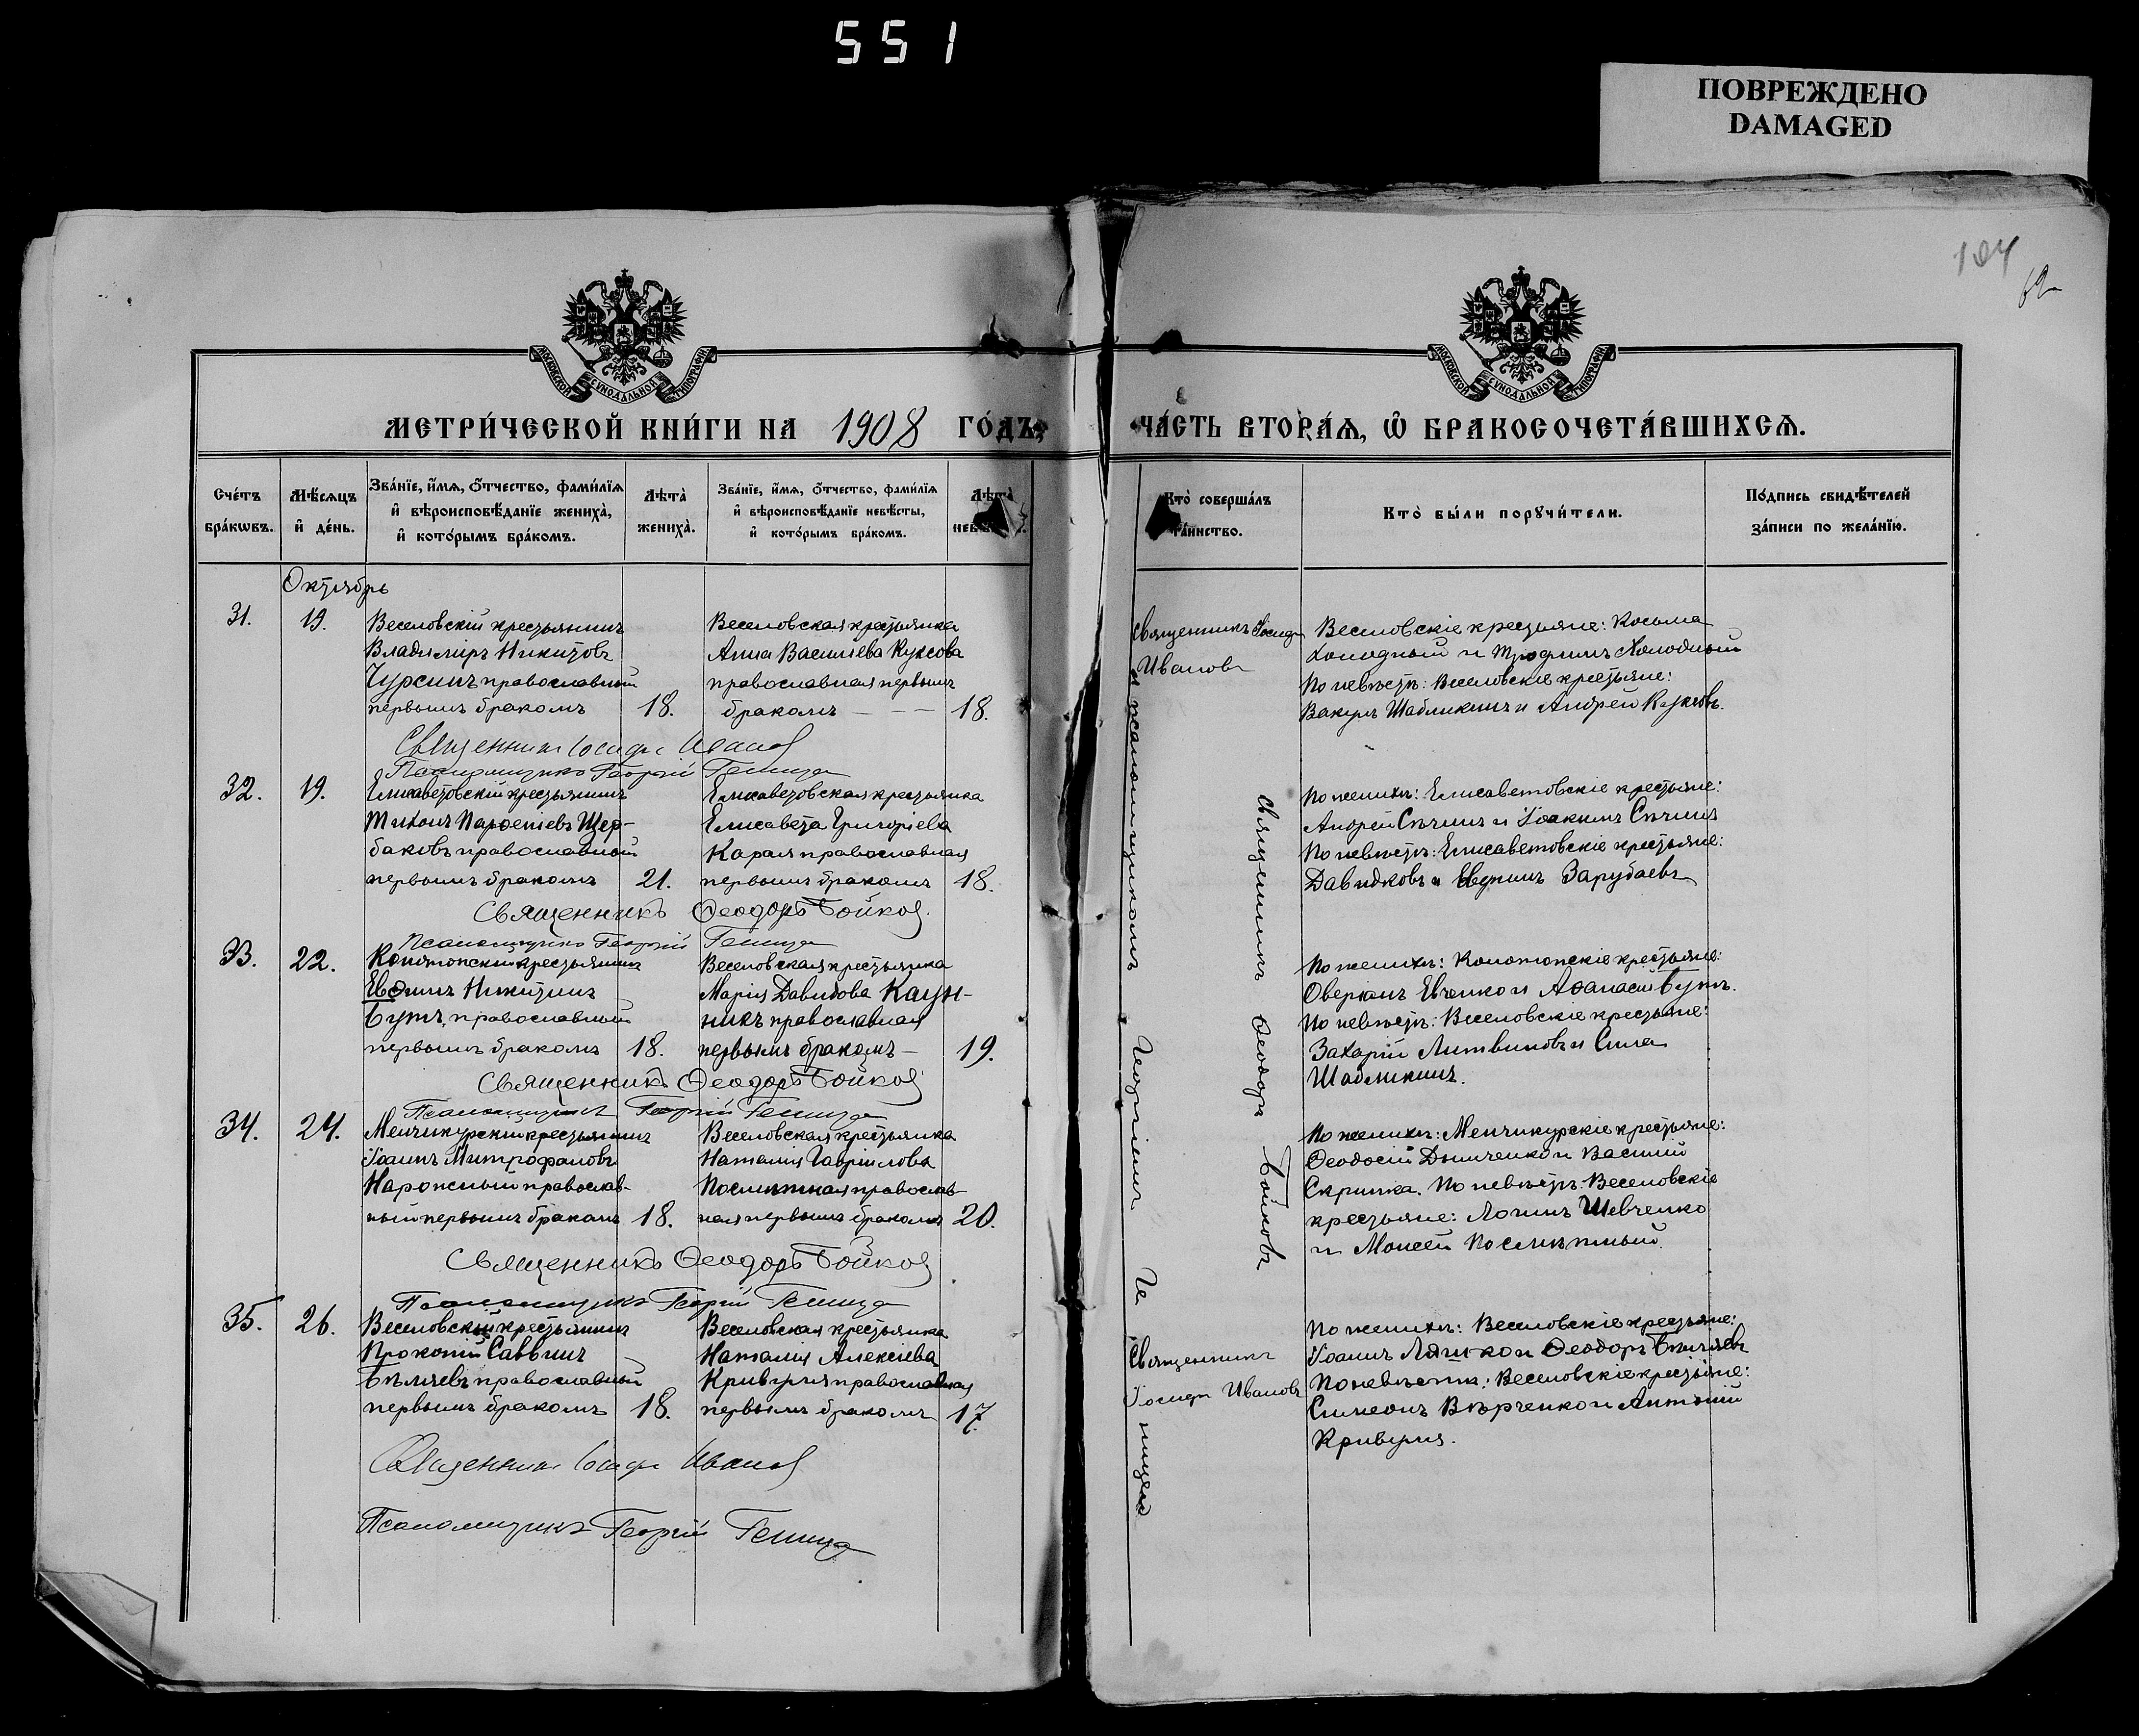 551
ПОВРЕЖДЕНО
DAMAGED
104
МОСКОВСКОЙ СѴНОДАЛЬНОЙ ТИПОГРАФІИ
МОСКОВСКОЙ СѴНОДАЛЬНОЙ ТИПОГРАФІИ
МЕТРИ́ЧЕСКОЙ КНИ́ГИ НА 1908 ГО́ДЪ,
ЧА́СТЬ ВТОРА́Ѧ, Ѡ҆ БРАКОСОЧЕТА́ВШИХСѦ.
Сче́тъ
бра́кѡвъ.
Мѣ́сяцъ
и҆ де́нь.
Зва́нїе, и҆́мѧ, ѻ҆́тчество, фами́лїѧ
и҆ вѣроисповѣ́данїе жениха̀,
и҆ кото́рымъ бра́комъ.
Лѣта̀
жениха̀.
Зва́нїе, и҆́мѧ, ѻ҆́тчество, фами́лїѧ
и҆ вѣроисповѣ́данїе невѣ́сты,
и҆ кото́рымъ бра́комъ.
Лѣта̀
Кто̀ соверша́лъ
та́инство.
Кто̀ бы́ли порꙋчи́тели.
По́дпись свидѣ́телей
за́писи по жела́нїю.
Октябрь
31.
19.
Веселовскій крестьянинъ
Владиміръ Никитовъ
Чурсинъ православный
первымъ бракомъ
18.
Веселовская крестьянка
Анна Васильева Куксова
православная первымъ
бракомъ — — —
18.
Священникъ Іосифъ
Ивановъ
Веселовскіе крестьяне: Косьма
Холодный и Трофимъ Холодный
По невѣстѣ: Веселовскіе крестьяне:
Вакулъ Шабликинъ и Андрей Куксовъ.
Священникъ Іосифъ Ивановъ
Псаломщикъ Георгій
32.
19.
Елисаветовскій крестьянинъ
Тихонъ Парѳеніевъ Щер-
баковъ православный
первымъ бракомъ
21.
Елисаветовская крестьянка
Елисавета Григоріева
Карая православная
первымъ бракомъ
18.
По женихѣ: Елисаветовскіе крестьяне:
Андрей Сѣчинъ и Іоакимъ Сѣчинъ
По невѣстѣ: Елисаветовскіе крестьяне:
Давидковъ и Зарубаевъ
Священникъ Ѳеодоръ Бойковъ
Псаломщикъ Георгій
33.
22.
Конотопскій крестьянинъ
Евѳимъ Никитинъ
Бутъ, православный
первымъ бракомъ
18.
Веселовская крестьянка
Марія Давидова Каун-
никъ православная
первымъ бракомъ —
19.
По женихѣ: Конотопскіе крестьяне:
Оверіанъ Евченко и Аѳанасій Бутъ.
По невѣстѣ: Веселовскіе крестьяне:
Захарій Литвиновъ и Сила
Шабликинъ.
Священникъ Ѳеодоръ Бойковъ
Псаломщикъ Георгій
34.
24.
Менчикурскій крестьянинъ
Іоаннъ Митрофановъ
Нарожный православ-
ный первымъ бракомъ
18.
Веселовская крестьянка
Наталія Гавріилова
Послѣтная православ-
ная первымъ бракомъ
20.
По женихѣ: Менчикурскіе крестьяне:
Ѳеодосій Дымченко и Василій
Скрипка. По невѣстѣ: Веселовскіе
крестьяне: Логинъ Шевченко
и Моисей Послѣтный.
Священникъ Ѳеодоръ Бойковъ
Псаломщикъ Георгій
35.
26.
Веселовскій крестьянинъ
Прокопій Саввинъ
Бѣляевъ православный
первымъ бракомъ
18.
Веселовская крестьянка
Наталія Алексіева
Кривуля православная
первымъ бракомъ
17.
Священникъ
Іосифъ Ивановъ
По женихѣ: Веселовскіе крестьяне:
Іоаннъ Ляшко и Ѳеодоръ Бѣляевъ
По невѣстѣ: Веселовскіе крестьяне:
Симеонъ Вѣрченко и Антоній
Кривуля.
Священникъ Іосифъ Ивановъ
Псаломщикъ Георгій
Священникъ Ѳеодоръ Бойковъ
и псаломщикомъ Георгіемъ